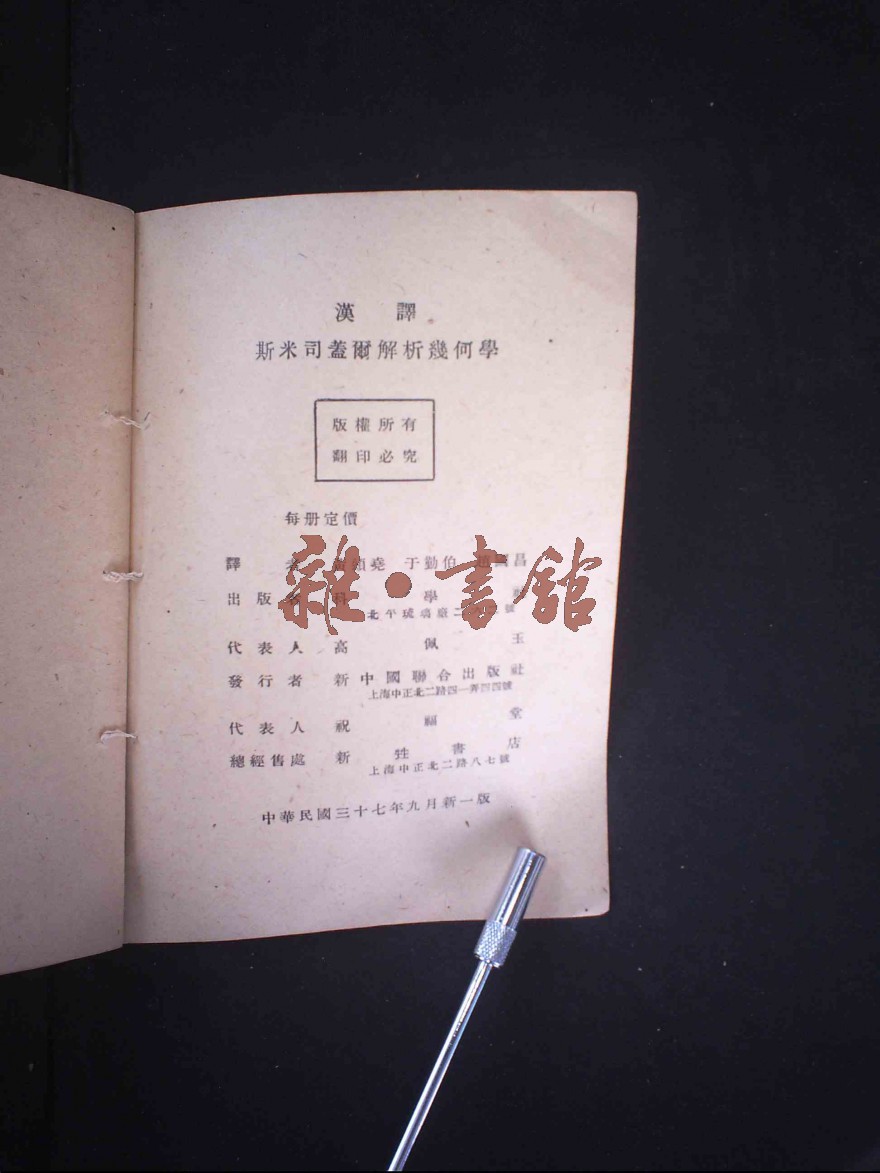 漢 譯
斯米司蓋爾解析幾何學
版權所有
翻印必究
每册定價
譯 者 堯 于勤伯 昌
出版者 科 學
北平琉璃廠二 號
代表人 高 佩 玉
發行者 新中國聯合出版社
上海中正北二路四一弄四四號
代表人 祝 堂
總經售處 新 甡 書 店
上海中正北二路八七號
中華民國三十七年九月新一版
雜·書館